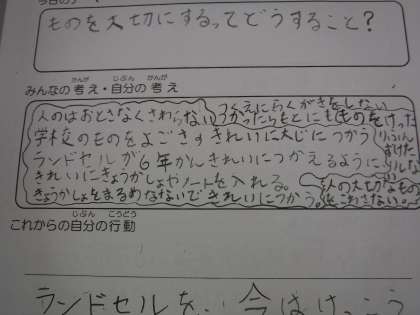 ものを大切にするってどうすること?
みんなの考え・自分の考え
かんが じぶん かんが
人のはおとさなくさわらない
つくえにらくがきをしない
つかったらもとにもどす
ものをけったり
学校のものをよごさずきれいに大じにつかう
ランドセルが6年かんきれいにつかえるように
きれいにきょうかしょやノートを入れる。
きょうかしょをまるめないできれいにつかう。
人の大切なものをこわさない。
これからの自分の行動
じぶん こうどう
ランドセルを、今はけっこう